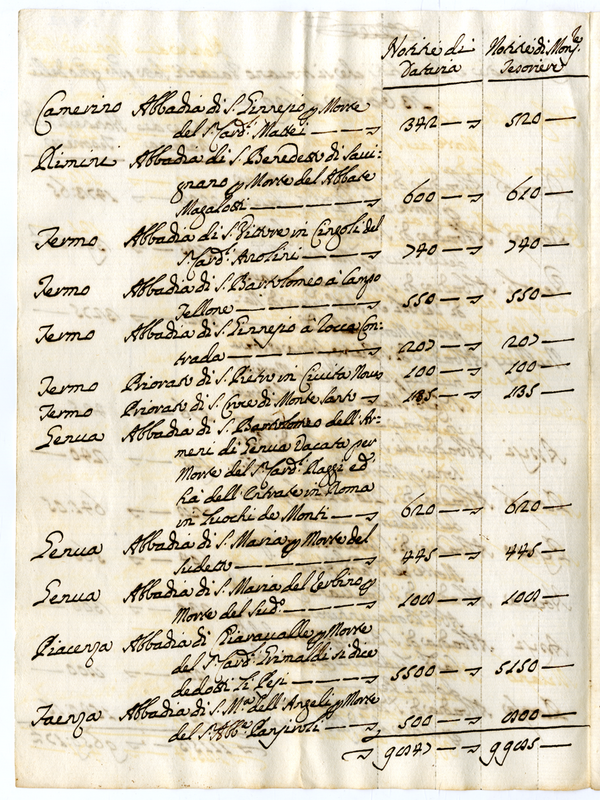 Notitie di Notitie di Mons.re
Dataria Tesoriere
Camerino Abbadia di S. Ginnesio p Morte
del S. Card. Mattei — 342 — 520 —
Rimini Abbadia di S. Benedetto di Savi:
gnano p Morte del Abbate
Magalotti — 600 — 610 —
Fermo Abbadia di S. Vittore in Cingoli del
S. Card. Azolini — 740 — 740 —
Fermo Abbadia di S. Bartolomeo à Campo
Fellone — 550 — 550 —
Fermo Abbadia di S. Ginnesio à Rocca Con:
trada — 207 — 207 —
Fermo Priorato di S. Pietro in Civita Nova 100 — 100 —
Fermo Priorato di S. Croce di Monte Santo 135 — 135 —
Genua Abbadia di S. Bartolomeo dell'Ar:
meni di Genua Vacata per
Morte del S. Card. Raggi ed
hà dell'Entrate in Roma
in Luochi de Monti — 620 — 620 —
Genua Abbadia di S. Maria p Morte del
sudetto — 445 — 445 —
Genua Abbadia di S. Maria del p
Morte del Sud.o —
Piacenza Abbadia di Chiaravalle p Morte
del S. Card. Grimaldi si dice
dedotti li Pesi — 5500 — 5150 —
Faenza Abbadia di S. M.a dell'Angeli p Morte
del S. Abb.e Panziroli — 500 — 800 —